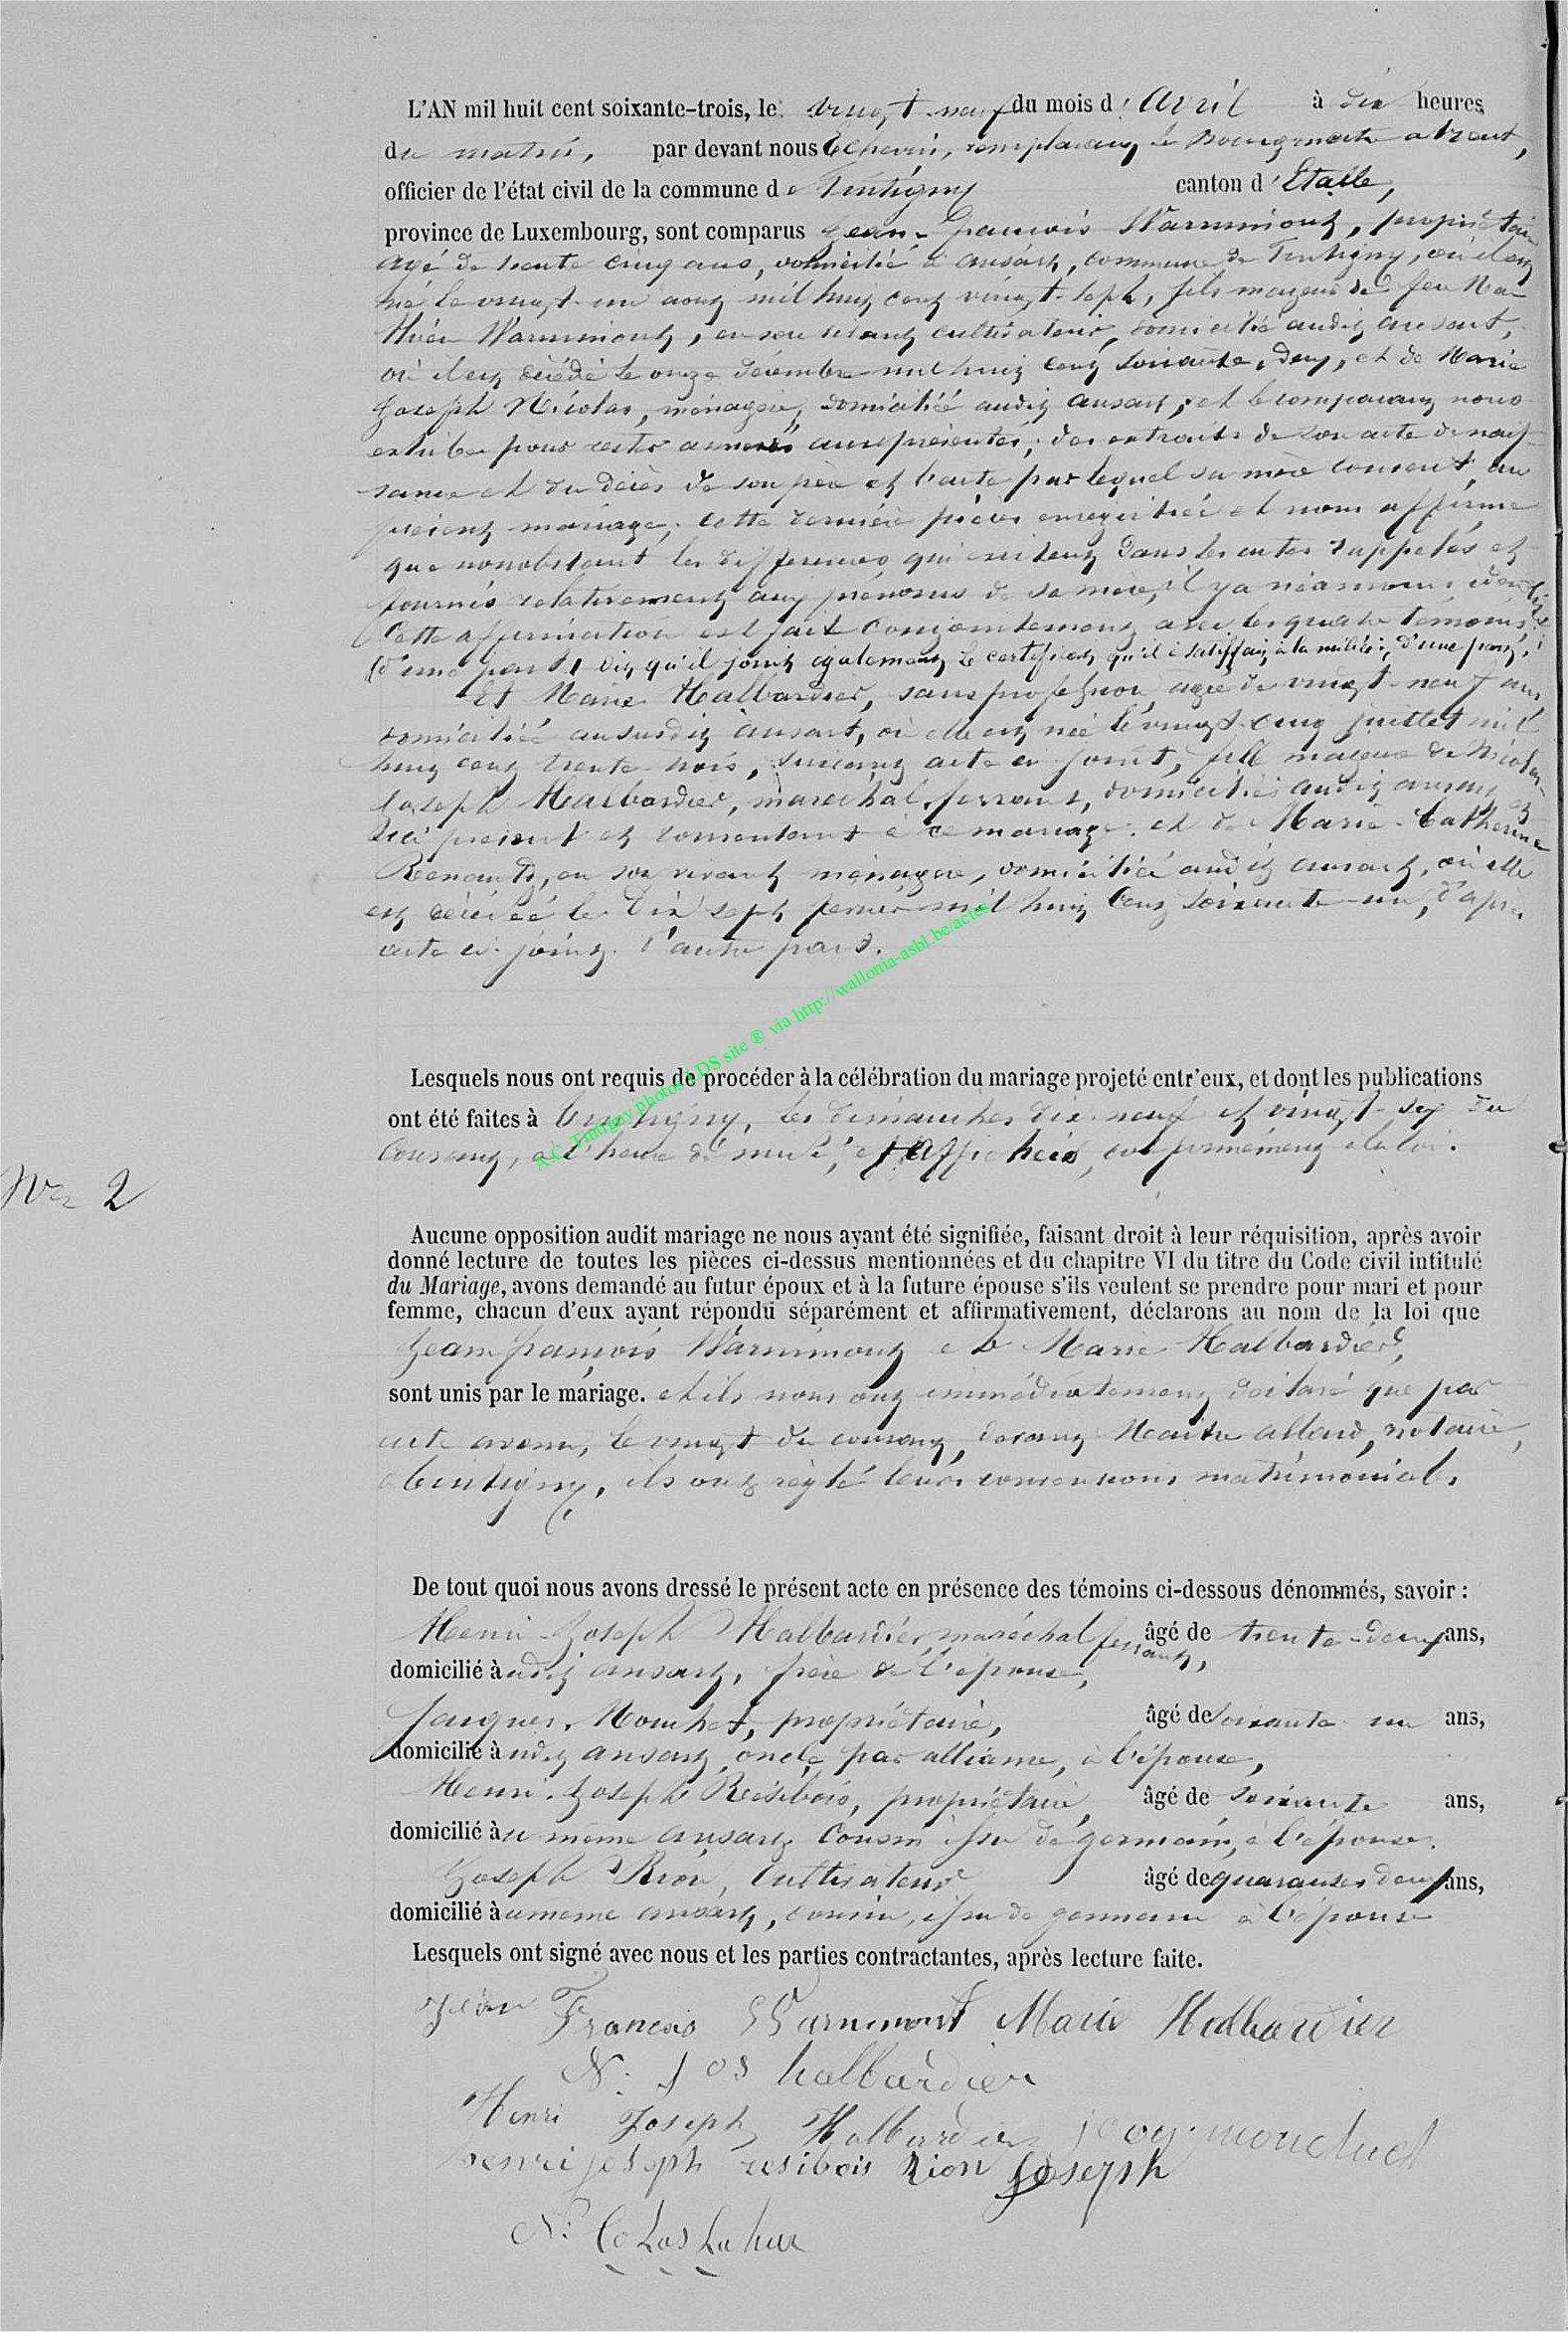 L'AN mil huit cent soixante-trois, le vingt-neuf du mois d'Avril à dix heures
du matin, par devant nous Echevin, remplaçant le Bourgmestre absent,
officier de l'état civil de la commune de Tintigny canton d'Etalle,
province de Luxembourg, sont comparus Jean-François Warnimont, propriétaire
agé de trente cinq ans, domicilié à ansart, commune de Tintigny, où il est
né le vingt-un aout mil huit cent vingt-sept, fils majeur de feu Ma-
thieu Warnimont, en son vivant cultivateur, domicilié audit ansart,
où il est décédé le onze décembre mil huit cent soixante, deux, et de Marie
Joseph Nicolas, ménagère, domiciliée audit ansart, et le comparant nous
exhibe pour rester annexés aux présentes, des extraits de son acte de nais-
sance et du décès de son père et l'acte par lequel sa mère consent au
présent mariage, cette dernière pièce enregistrée et nous affirme
que nonobstant les differences qui existent dans les actes rappelés et
fournis relativement aux prénoms de sa mère, il y a néanmoins identité
Cette affirmation est faite conjointement avec les quatre témoins
(d'une part) dit qu'il joint également le certificat qu'il a satisfait à la milice, d'une part,
Et Marie Halbardier, sans profession, agée de vingt-neuf ans
domiciliée au susdit ansart, où elle est née le vingt-cinq juillet mil
huit cent trente-trois, suivant acte ci-joint, fille majeure de Nicolas-
Joseph Halbardier, maréchal-ferrant, domicilié audit ansart et
ici présent et consentant à ce mariage. et de Marie-Catherine
Renauld, en son vivant ménagère, domiciliée audit ansart, où elle
est décédée le dix sept mil huit cent soixante-un, d'après
acte ci-joint. d'autre part.
Lesquels nous ont requis de procéder à la célébration du mariage projeté entr'eux, et dont les publications
ont été faites à Tintigny, les dimanches dix-neuf et vingt-six du
Courant, à l'heure de midi, et affichées, conformément à la loi.
A.C. Tintigny photos LDS site ® via http://wallonia-asbl.be/actes
Nr 2
Aucune opposition audit mariage ne nous ayant été signifiée, faisant droit à leur réquisition, après avoir
donné lecture de toutes les pièces ci-dessus mentionnées et du chapitre VI du titre du Code civil intitulé
du Mariage, avons demandé au futur époux et à la future épouse s'ils veulent se prendre pour mari et pour
femme, chacun d'eux ayant répondu séparément et affirmativement, déclarons au nom de la loi que
Jean françois Warnimont et Marie Halbardier,
sont unis par le mariage. et ils nous ont immédiatement déclaré que par
acte avenu, le vingt du courant, devant Maitre allard, notaire,
à Tintigny, ils ont réglé leurs conventions matrimoniales
De tout quoi nous avons dressé le présent acte en présence des témoins ci-dessous dénommés, savoir :
Henri-Joseph Halbardier, maréchal ferrant, âgé de trente-deux ans,
domicilié àudit ansart, frère de l'épouse,
Jacques, Mouchet, propriétaire, âgé de soixante-un ans,
domicilié àudit ansart, oncle par alliance, à l'épouse,
Henri-Joseph Résibois, propriétaire, âgé de soixante ans,
domicilié àu même ansart, Cousin issu de germain, à l'épouse.
Joseph Rion, Cultivateur âgé de quarante deux ans,
domicilié àu meme ansart, cousin, issu de germain à l'épouse
Lesquels ont signé avec nous et les parties contractantes, après lecture faite.
Jean François Warnimont Marie Halbardier
N. Jos halbardier
Henri Joseph Halbardier jacq. mouchet
henri joseph resibois Rion Joseph
N: